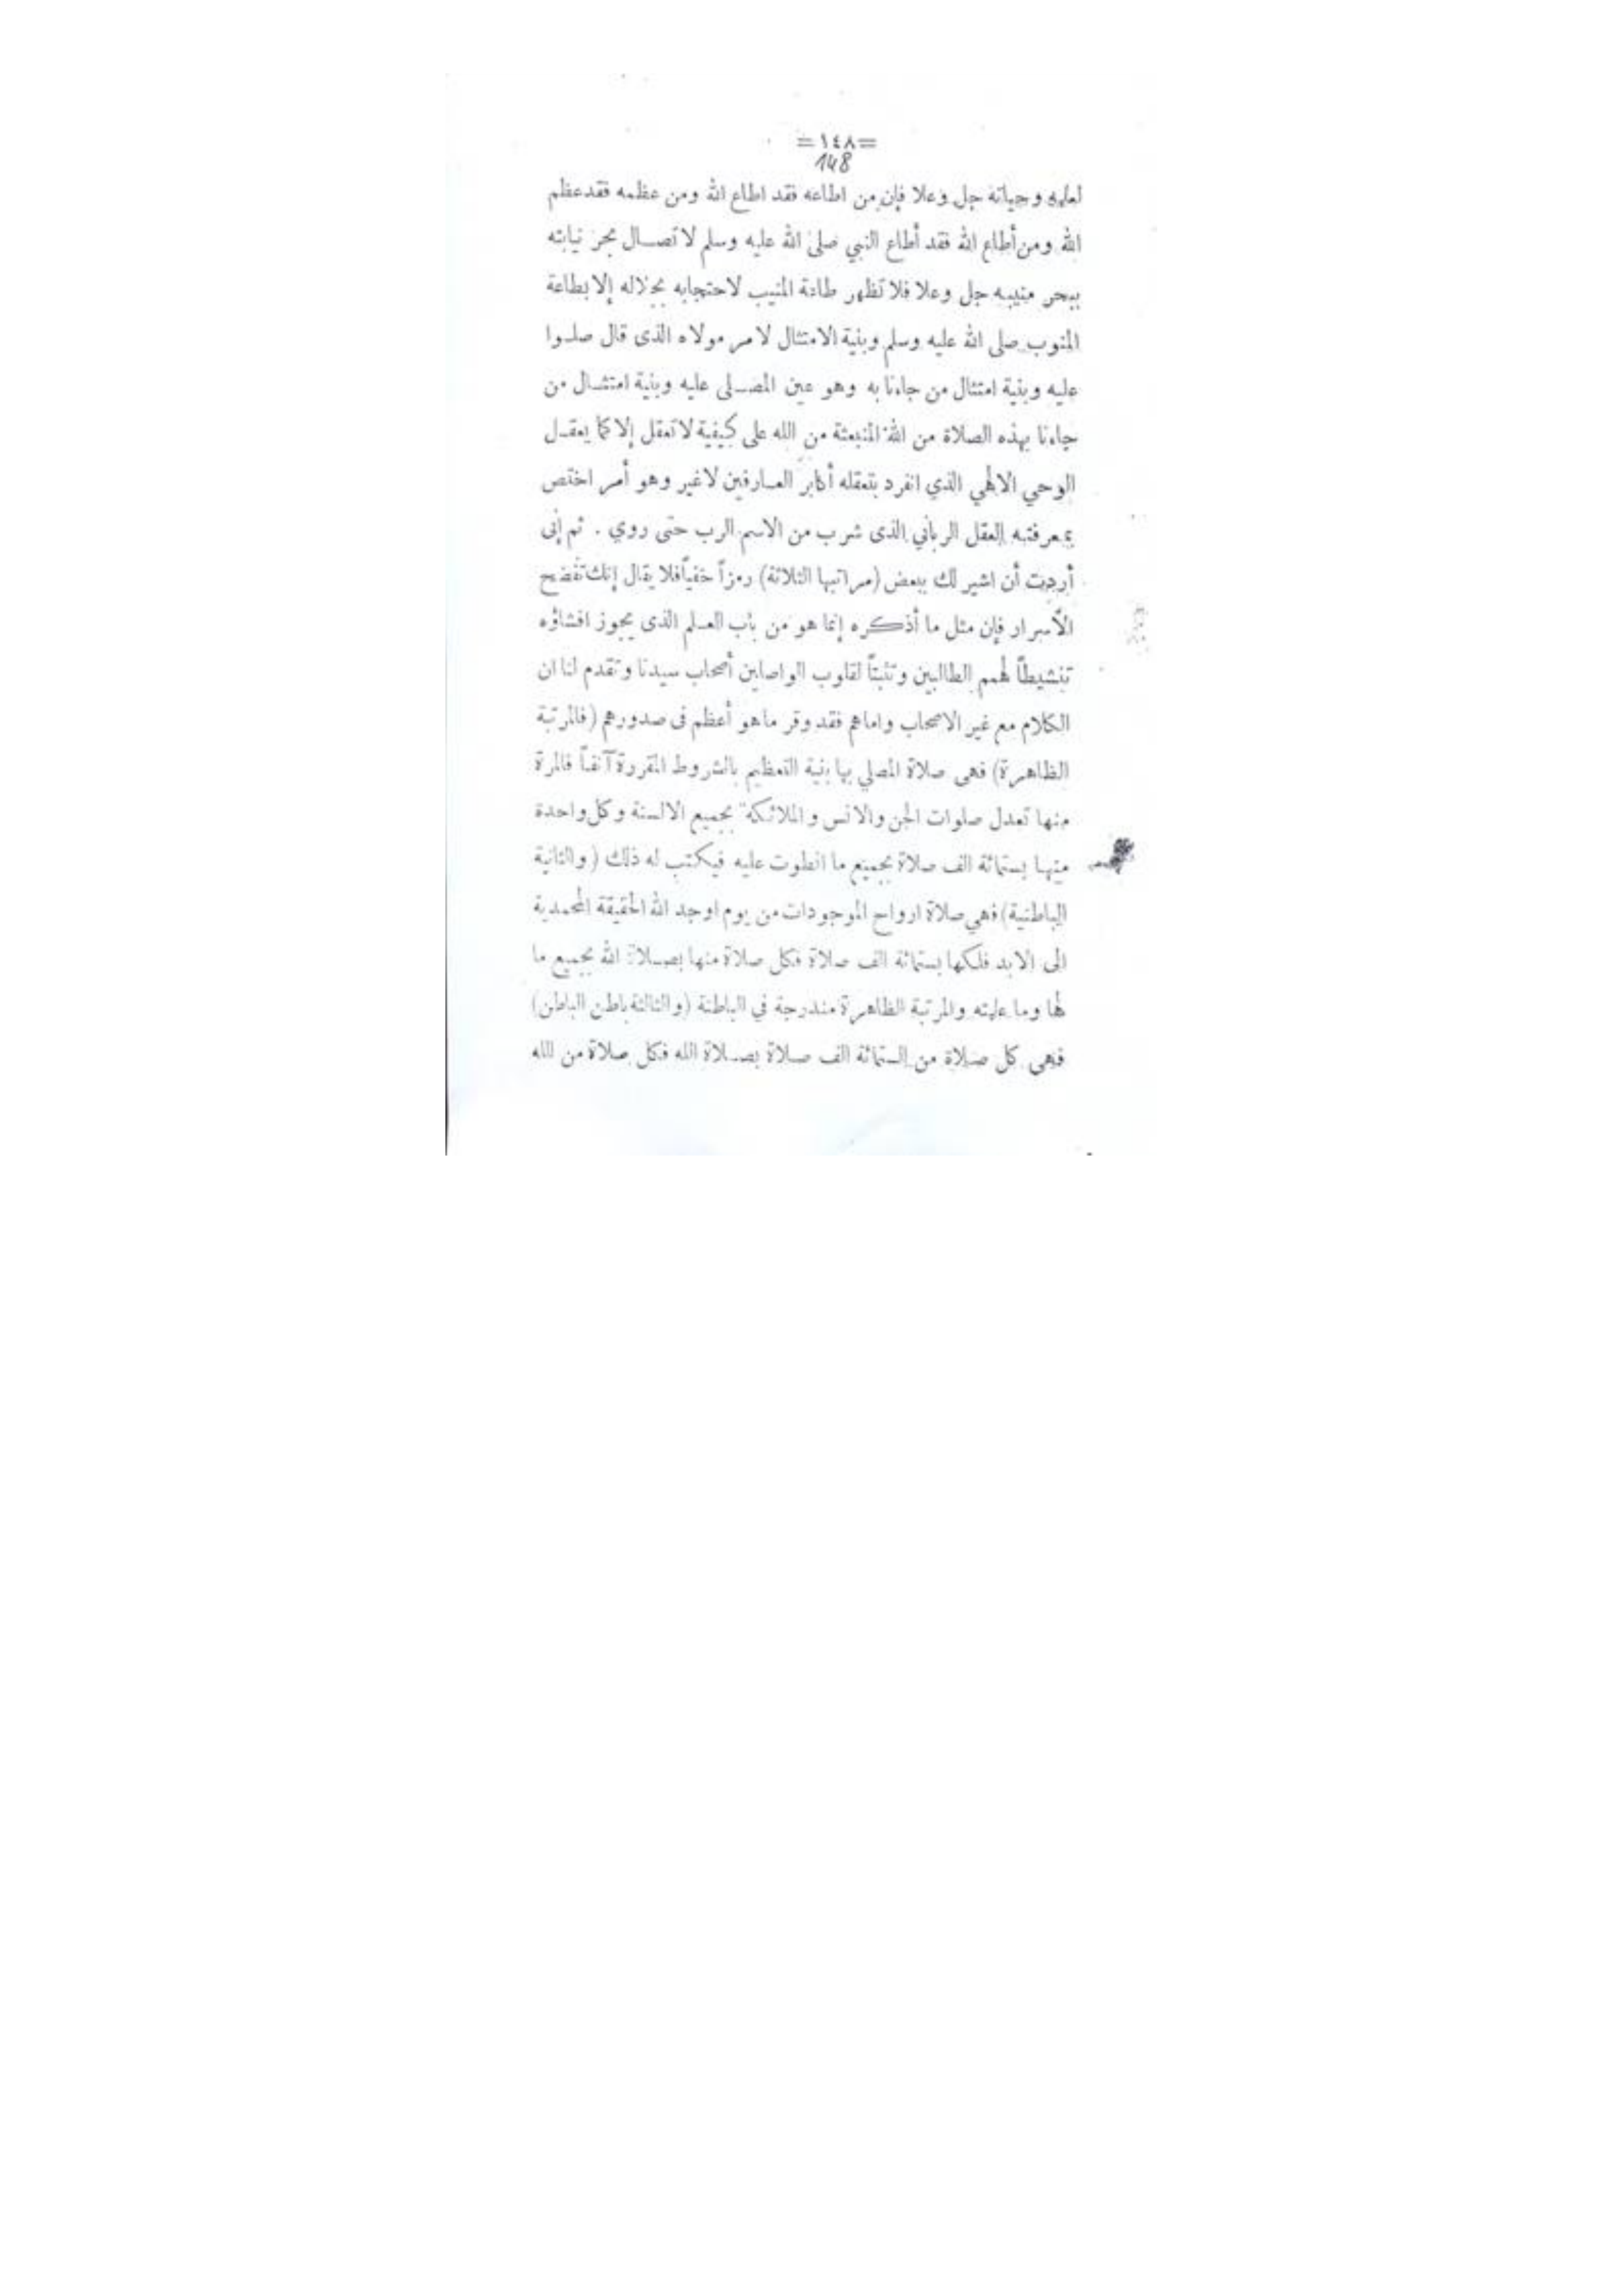 =١٤٨=
148
وحياته جل وعلا فإن من اطاعه فقد اطاع الله ومن عظمه فقد عظم
الله ومن أطاع الله فقد أطاع النبي صلى الله عليه وسلم لاتصال بحر نيابته
ببحر منيبه جل وعلا فلا تظهر طاعة المنيب لاحتجابه بجلاله إلا بطاعة
المنوب صلى الله عليه وسلم وبنية الامتثال لامر مولاه الذى قال صلوا
عليه وبنية امتثال من جاءنا به وهو عين المصلى عليه وبنية امتثال من
جاءنا بهذه الصلاة من الله المنبعثة من الله على كيفية لا تعقل إلا كما يعقل
الوحي الالهي الذي انفرد بتعقله أكابر العارفين لاغير وهو أمر اختص
بمعرفته العقل الرباني الذى شرب من الاسم الرب حتى روي . ثم إنى
أردت أن اشير لك ببعض (مراتبها الثلاثة) رمزاً خفياً فلا يقال إنك تفضح
الأسرار فإن مثل ما أذكره إنما هو من باب العلم الذى يجوز افشاؤه
تنشيطاً لهمم الطالبين وتثبتاً لقلوب الواصلين أصحاب سيدنا وتقدم لنا ان
الكلام مع غير الاصحاب واماهم فقد وقر ماهو أعظم فى صدورهم (فالمرتبة
الظاهرة) فهى صلاة المصلي بها بنية التعظيم بالشروط المقررة آنفاً فالمرة
منها تعدل صلوات الجن والانس والملائكة بجميع الالسنة وكل واحدة
منها بستمائة الف صلاة بجميع ما انطوت عليه فيكتب له ذلك (والثانية
الباطنية) فهي صلاة ارواح الموجودات من يوم اوجد الله الحقيقة المحمدية
الى الابد فلكها بستمائة الف صلاة فكل صلاة منها بصلاة الله بجميع ما
لها وما عليته والمرتبة الظاهرة مندرجة في الباطنة (والثالثة باطن الباطن)
فهى كل صلاة من الستمائة الف صلاة بصلاة الله فكل صلاة من الله